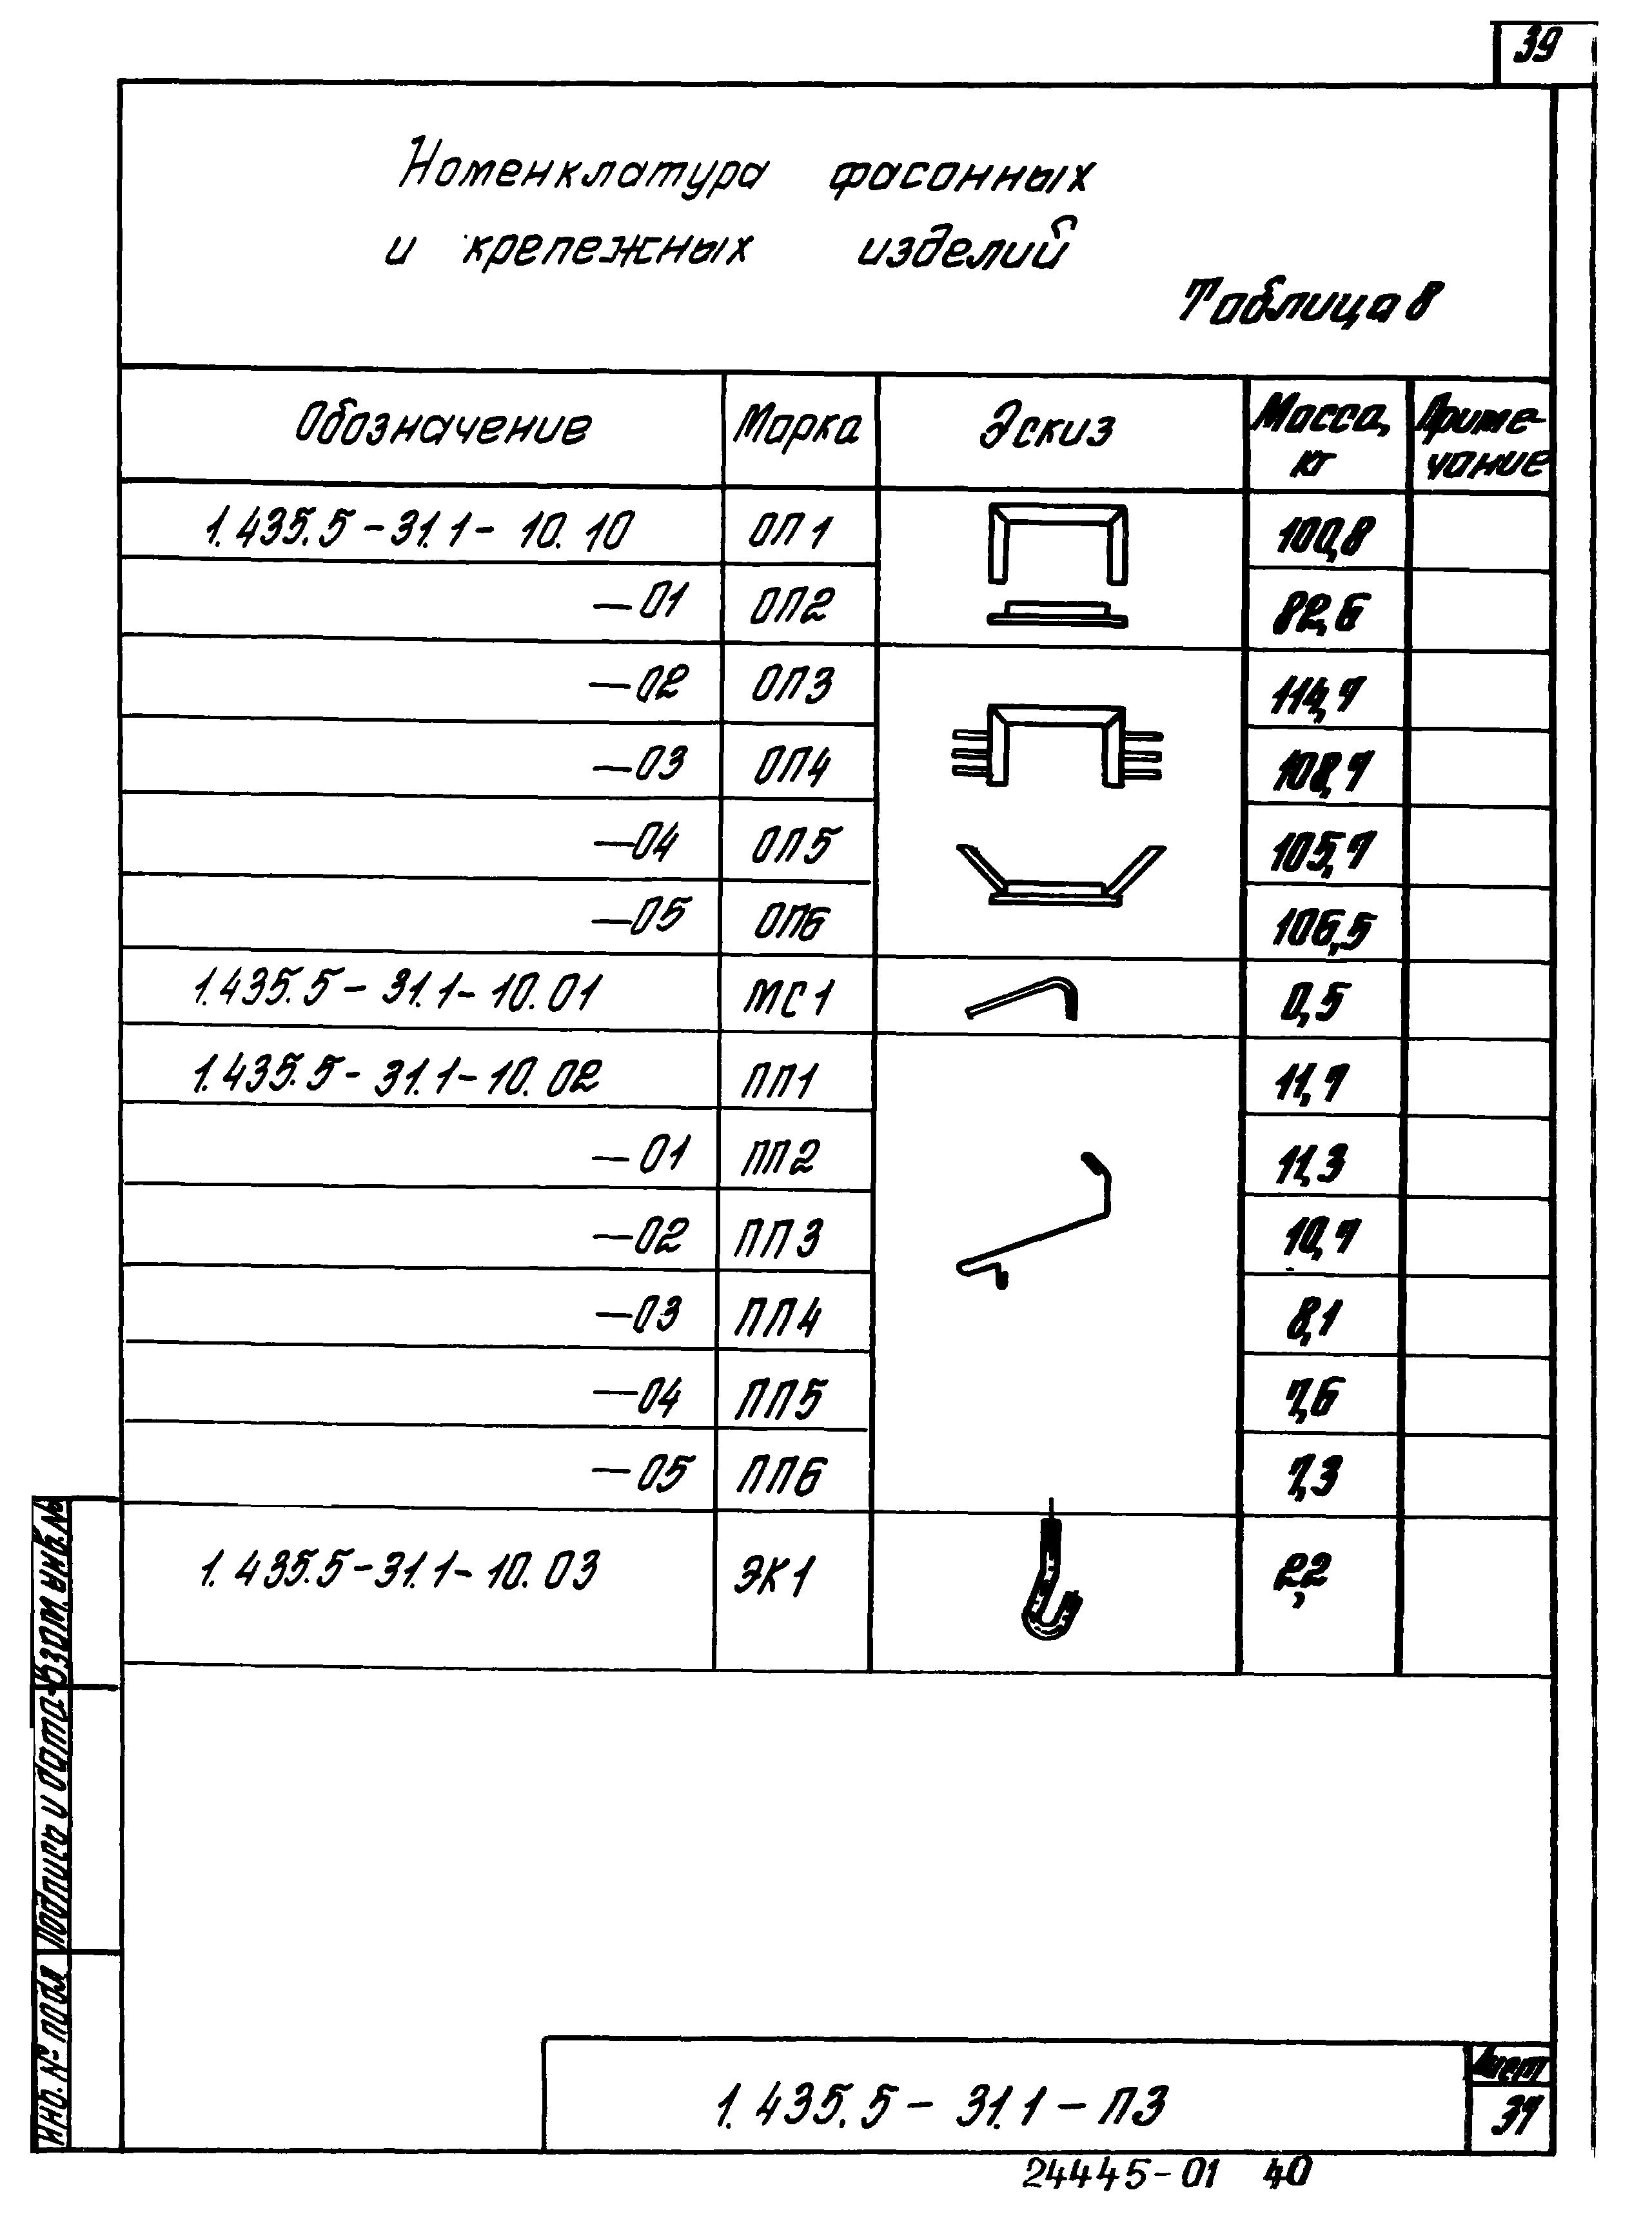 39
Номенклатура фасонных
и крепежных изделий
Таблица 8
Обозначение Марка Эскиз Масса, кг Приме-чание
1.435.5-31.1-10.10 ОП1 100,8
-01 ОП2 82,6
-02 ОП3 114,7
-03 ОП4 108,7
-04 ОП5 105,7
-05 ОП6 106,5
1.435.5-31.1-10.01 МС1 0,5
1.435.5-31.1-10.02 ПП1 11,7
-01 ПП2 11,3
-02 ПП3 10,7
-03 ПП4 8,1
-04 ПП5 7,6
-05 ПП6 7,3
1.435.5-31.1-10.03 ЭК1 2,2
Взам.инв.№
Подпись и дата
Инв. № подл
1.435.5-31.1-ПЗ
Лист
37
24445-01 40